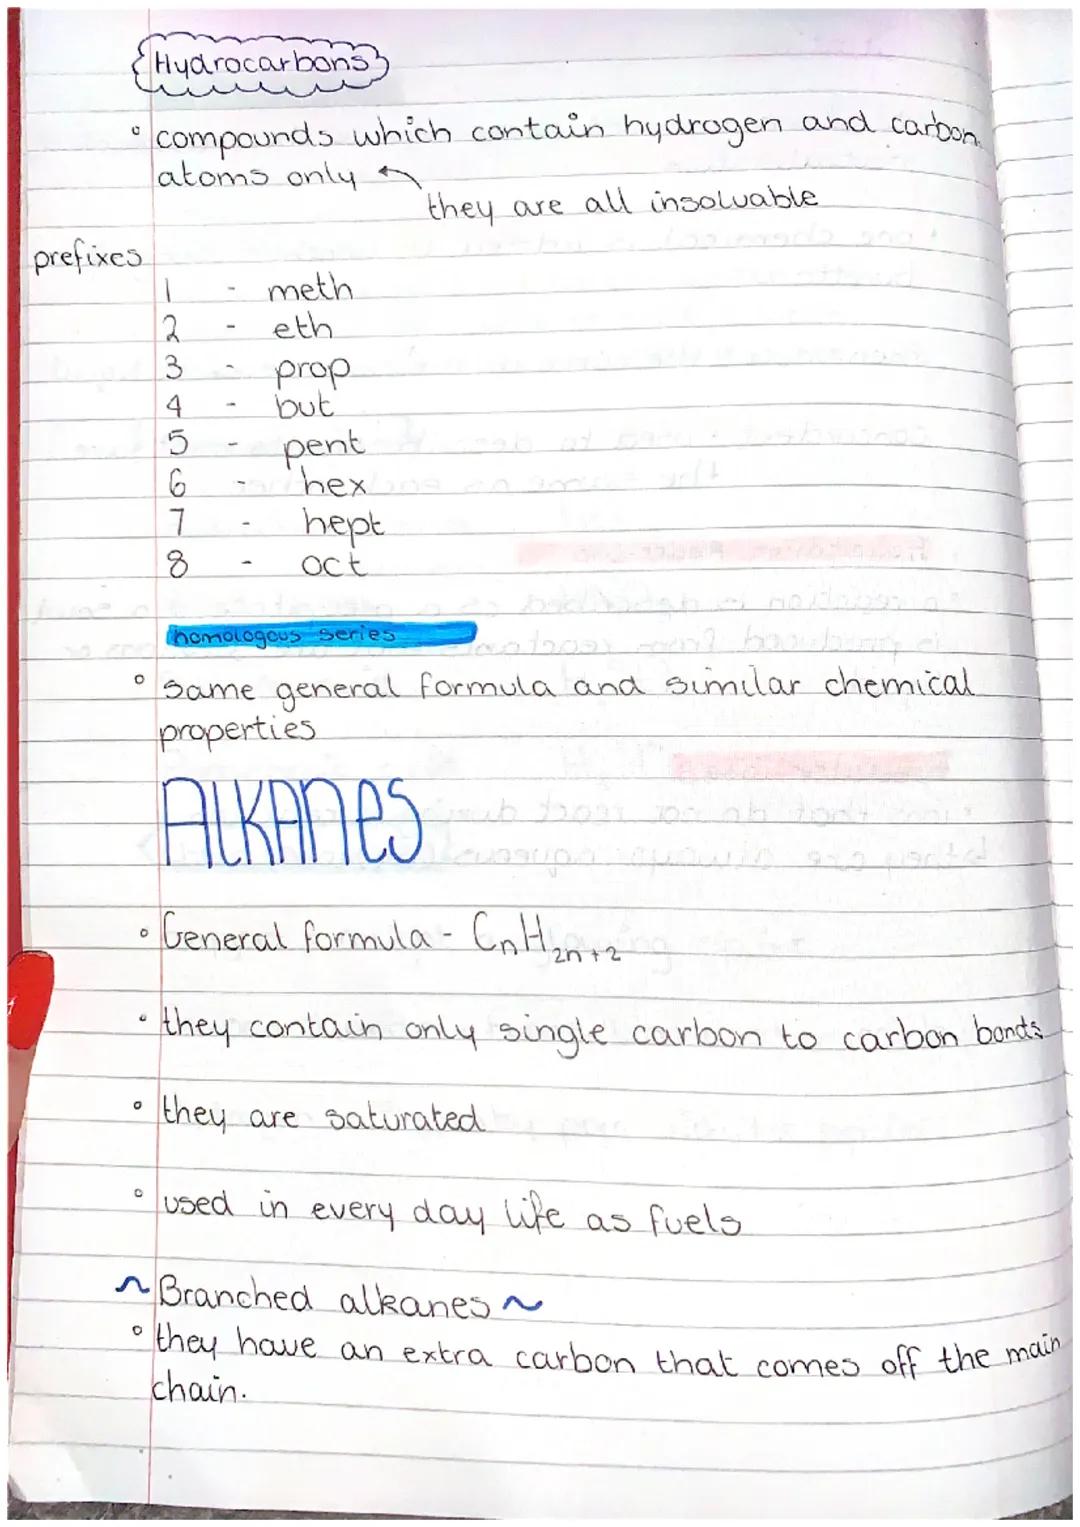 Hydrocarbons
° compounds which contain hydrogen and carbon
atoms only
they are all insoluable
prefixes
1 - meth
2 - eth
3 - prop
4 - but
5 - pent
6 - hex
7 - hept
8 - oct
homologous series
° same general formula and similar chemical
properties
ALKANES
° General formula - CnH2n+2
° they contain only single carbon to carbon bonds
° they are saturated
° used in every day life as fuels
~ Branched alkanes ~
° they have an extra carbon that comes off the main
chain.